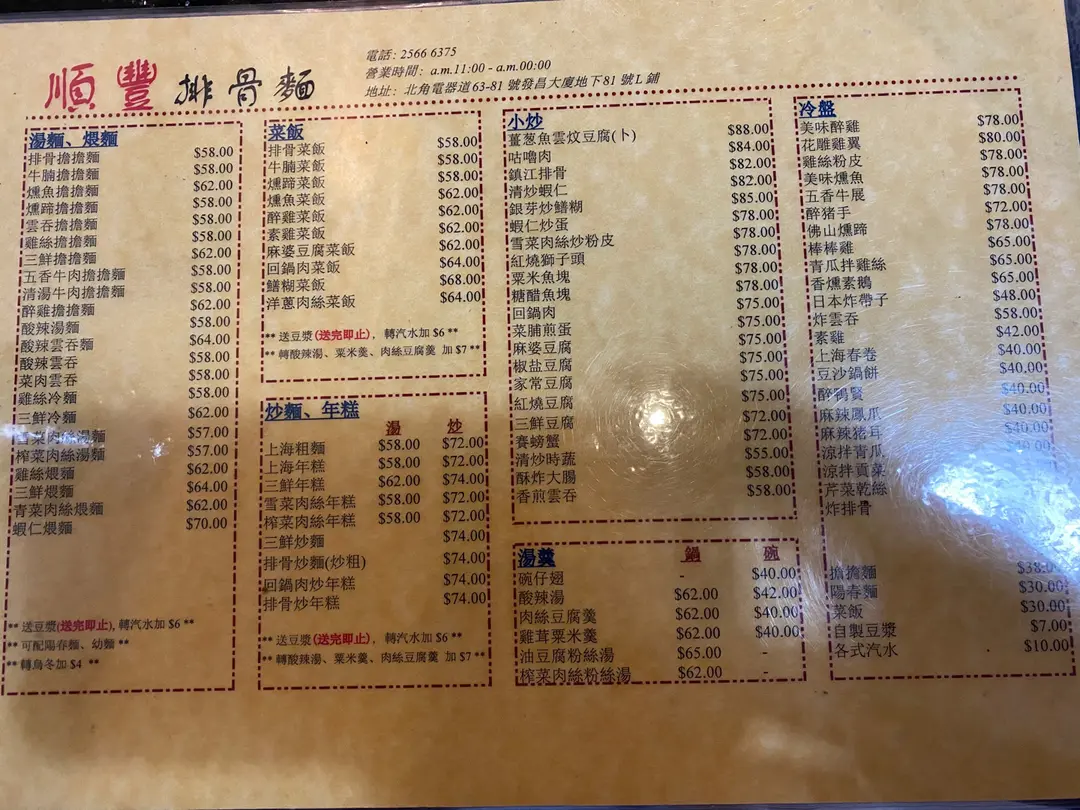 順豐 排骨麵
電話: 2566 6375
營業時間: a.m.11:00 - a.m.00:00
地址: 北角電器道63-81 號發昌大廈地下81 號L 鋪
湯麵、煨麵
排骨擔擔麵 $58.00
牛腩擔擔麵 $58.00
燻魚擔擔麵 $62.00
燻蹄擔擔麵 $58.00
雲吞擔擔麵 $58.00
雞絲擔擔麵 $58.00
三鮮擔擔麵 $62.00
五香牛肉擔擔麵 $58.00
清湯牛肉擔擔麵 $58.00
醉雞擔擔麵 $62.00
酸辣湯麵 $58.00
酸辣雲吞麵 $64.00
酸辣雲吞 $58.00
菜肉雲吞 $58.00
雞絲冷麵 $58.00
三鮮冷麵 $62.00
雪菜肉絲湯麵 $57.00
榨菜肉絲湯麵 $57.00
雞絲煨麵 $62.00
三鮮煨麵 $64.00
青菜肉絲煨麵 $62.00
蝦仁煨麵 $70.00
** 送豆漿(送完即止), 轉汽水加 $6 **
** 可配陽春麵、幼麵 **
** 轉烏冬加 $4 **
菜飯
排骨菜飯 $58.00
牛腩菜飯 $58.00
燻蹄菜飯 $58.00
燻魚菜飯 $62.00
醉雞菜飯 $62.00
素雞菜飯 $62.00
麻婆豆腐菜飯 $62.00
回鍋肉菜飯 $64.00
鱔糊菜飯 $68.00
洋蔥肉絲菜飯 $64.00
** 送豆漿(送完即止), 轉汽水加 $6 **
** 轉酸辣湯、粟米羹、肉絲豆腐羹 加 $7 **
炒麵、年糕
湯 炒
上海粗麵 $58.00 $72.00
上海年糕 $58.00 $72.00
三鮮年糕 $62.00 $74.00
雪菜肉絲年糕 $58.00 $72.00
榨菜肉絲年糕 $58.00 $72.00
三鮮炒麵 $74.00
排骨炒麵(炒粗) $74.00
回鍋肉炒年糕 $74.00
排骨炒年糕 $74.00
** 送豆漿(送完即止), 轉汽水加 $6 **
** 轉酸辣湯、粟米羹、肉絲豆腐羹 加 $7 **
小炒
薑葱魚雲炆豆腐(卜) $88.00
咕嚕肉 $84.00
鎮江排骨 $82.00
清炒蝦仁 $82.00
銀芽炒鱔糊 $85.00
蝦仁炒蛋 $78.00
雪菜肉絲炒粉皮 $78.00
紅燒獅子頭 $78.00
粟米魚塊 $78.00
糖醋魚塊 $78.00
回鍋肉 $75.00
菜脯煎蛋 $75.00
麻婆豆腐 $75.00
椒鹽豆腐 $75.00
家常豆腐 $75.00
紅燒豆腐 $75.00
三鮮豆腐 $72.00
賽螃蟹 $72.00
清炒時蔬 $55.00
酥炸大腸 $58.00
香煎雲吞 $58.00
湯羹
鍋 碗
碗仔翅 - $40.00
酸辣湯 $62.00 $42.00
肉絲豆腐羹 $62.00 $40.00
雞茸粟米羹 $62.00 $40.00
油豆腐粉絲湯 $65.00 -
榨菜肉絲粉絲湯 $62.00 -
冷盤
美味醉雞 $78.00
花雕雞翼 $80.00
雞絲粉皮 $78.00
美味燻魚 $78.00
五香牛展 $78.00
醉豬手 $72.00
佛山燻蹄 $78.00
棒棒雞 $65.00
青瓜拌雞絲 $65.00
香燻素鵝 $65.00
日本炸帶子 $48.00
炸雲吞 $58.00
素雞 $42.00
上海春卷 $40.00
豆沙鍋餅 $40.00
醉鴨腎 $40.00
麻辣鳳爪 $40.00
麻辣豬耳 $40.00
涼拌青瓜 $40.00
涼拌貢菜
芹菜乾絲
炸排骨
擔擔麵 $38.00
陽春麵 $30.00
菜飯 $30.00
自製豆漿 $7.00
各式汽水 $10.00